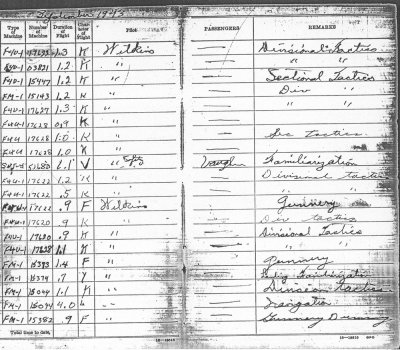 1945
Type of Machine Number of Machine Duration of Flight Character of Flight Pilot PASSENGERS REMARKS
F4U-1 1.3 K Wilkins Divisional Tactics
1.2 K " " "
F4U-1 15447 1.2 K " Sectional Tactics
FM-1 15143 1.2 K " Div "
F4U-1 17627 1.3 K " " "
F4U-1 17628 0.9 K "
F4U-1 17628 1.0 K " Sec tactics
F4U-1 17628 1.0 K "
1.1 V " Vaughn Familiarization
F4U-1 17622 1.2 K " Divisional tactics
F4U-1 17622 .5 K "
17622 .9 F Wilkins Gunnery
F4U-1 17620 .9 K " Div tactics
F4U-1 17620 .9 K " Divisional Tactics
F4U-1 17628 1.1 K " " "
FM-1 1.4 F " Gunnery
FM-1 .7 "
FM-1 1.1 K " Division Tactics
FM-1 4.0 " Navigation
FM-1 15382 .9 F " Gunnery Dummy
Total time to date,